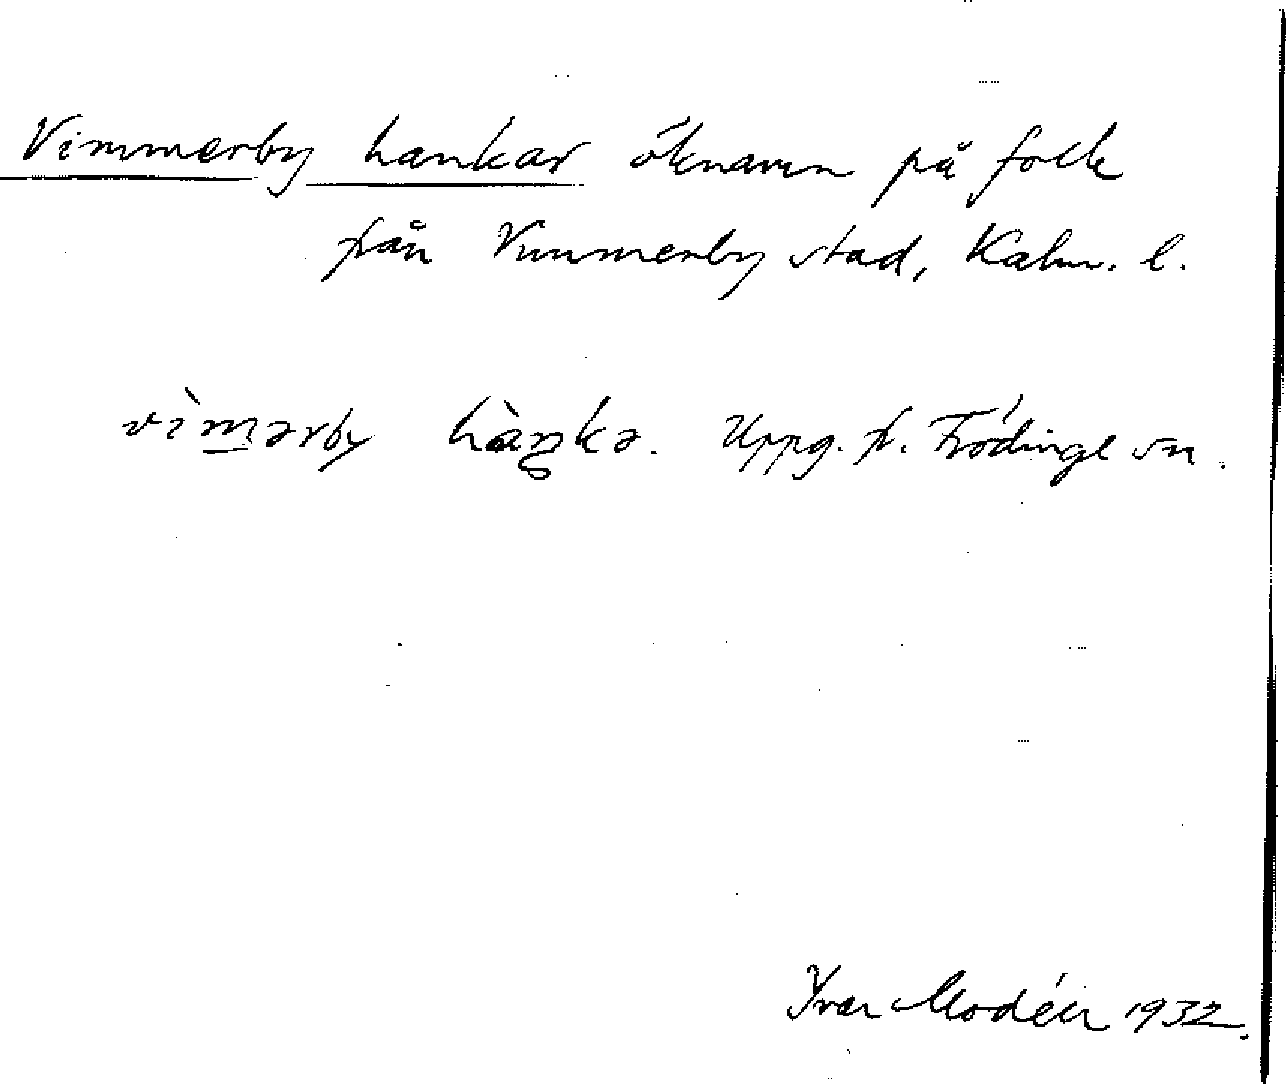 Vimmerby hankar öknamn på folk
från Vimmerby stad, Kalm. l.
vìmərby hàŋkə. Uppg. fr. Frödinge sn.
Ivar Modéer 1932.